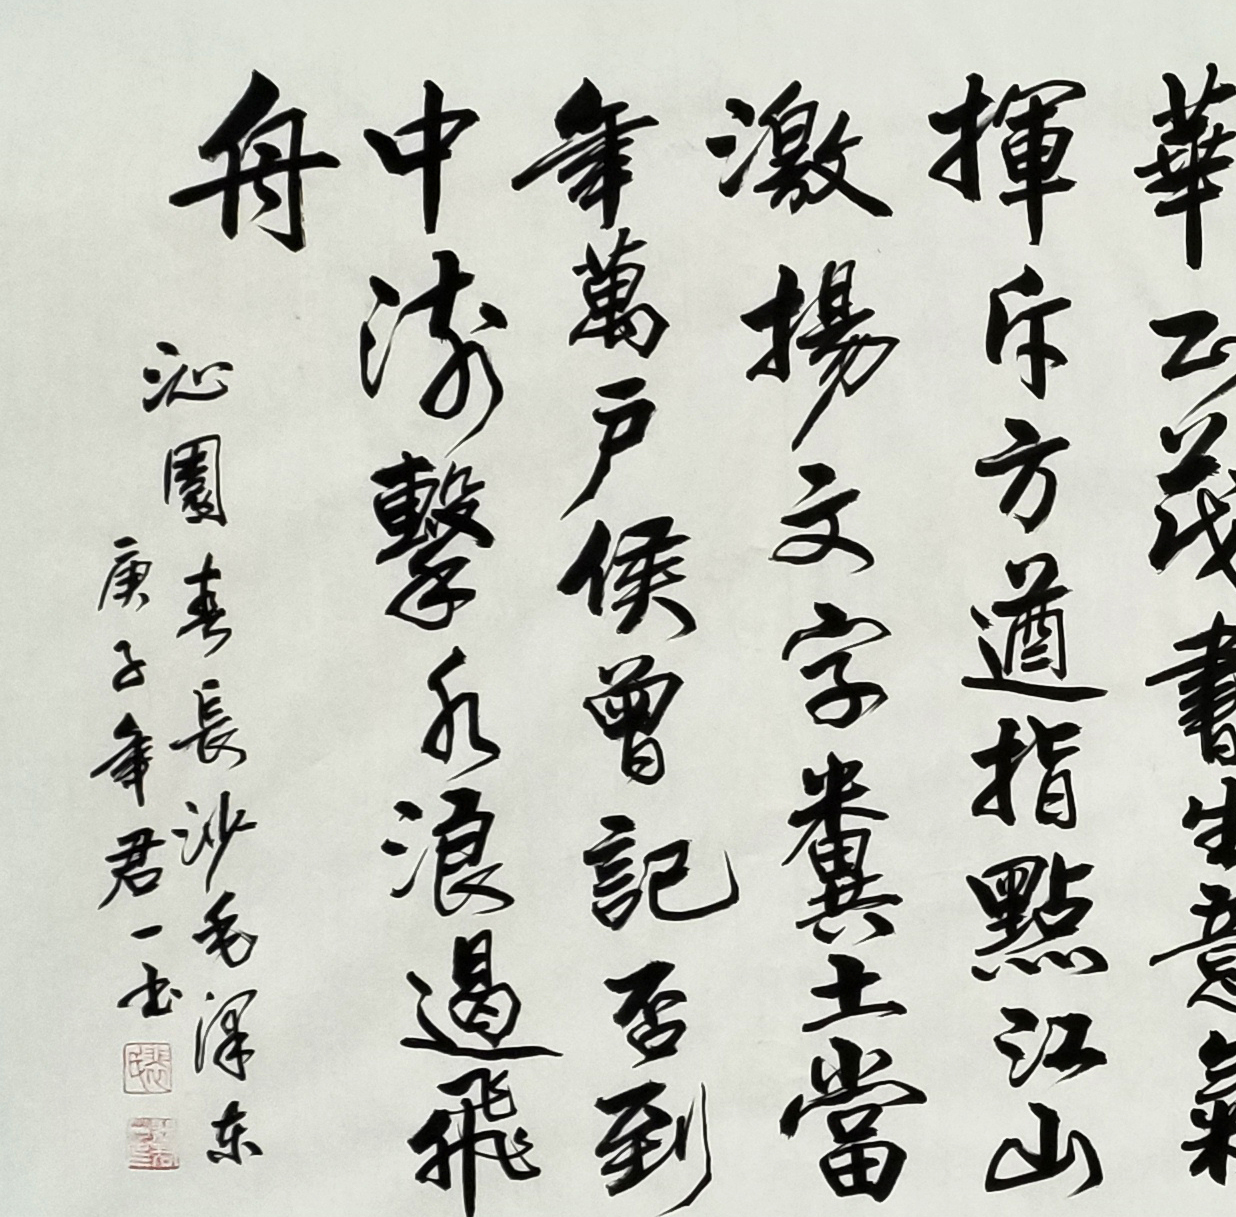 華正茂書生意氣
揮斥方遒指點江山
激揚文字糞土當
年萬户侯曾記否到
中流擊水浪遏飛
舟
沁園春長沙毛澤东
庚子年君一书